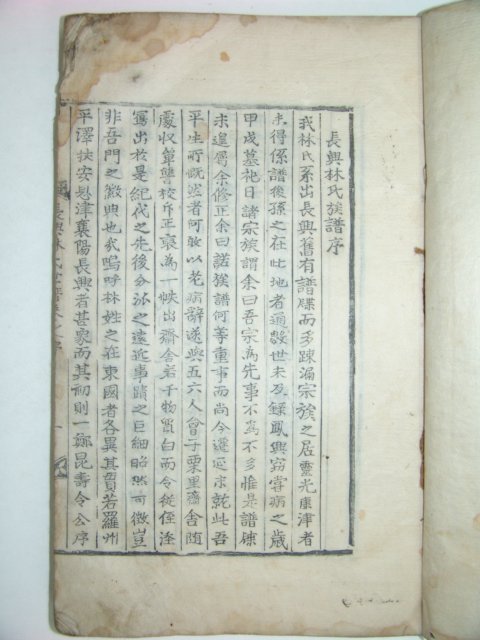 長興林氏族譜序
我林氏系出長興舊有譜牒而多踈漏宗族之居靈光康津者
未得係譜後孫之在此地者過數世未及錄鳳興竊嘗病之歲
甲戌墓祀日諸宗族謂余曰吾宗爲先事不爲不多惟是譜牒
未遑屬余修正余曰諾族譜何等重事而尚今遷延未就此吾
平生所慨然者何敢以老病辭遂與五六人會于栗里齋舍随
處收單讐校斥正裒爲一帙出齋舍若干物貲白而令從侄
寫出於是紀代之先後分派之遠近事蹟之巨細昭然可徵豈
非吾門之徽典也哉嗚呼林姓之在東國者各異其貫若羅州
平澤扶安恩津襄陽長興者甚衆而其初則一鄭昆壽令公序
長興林氏